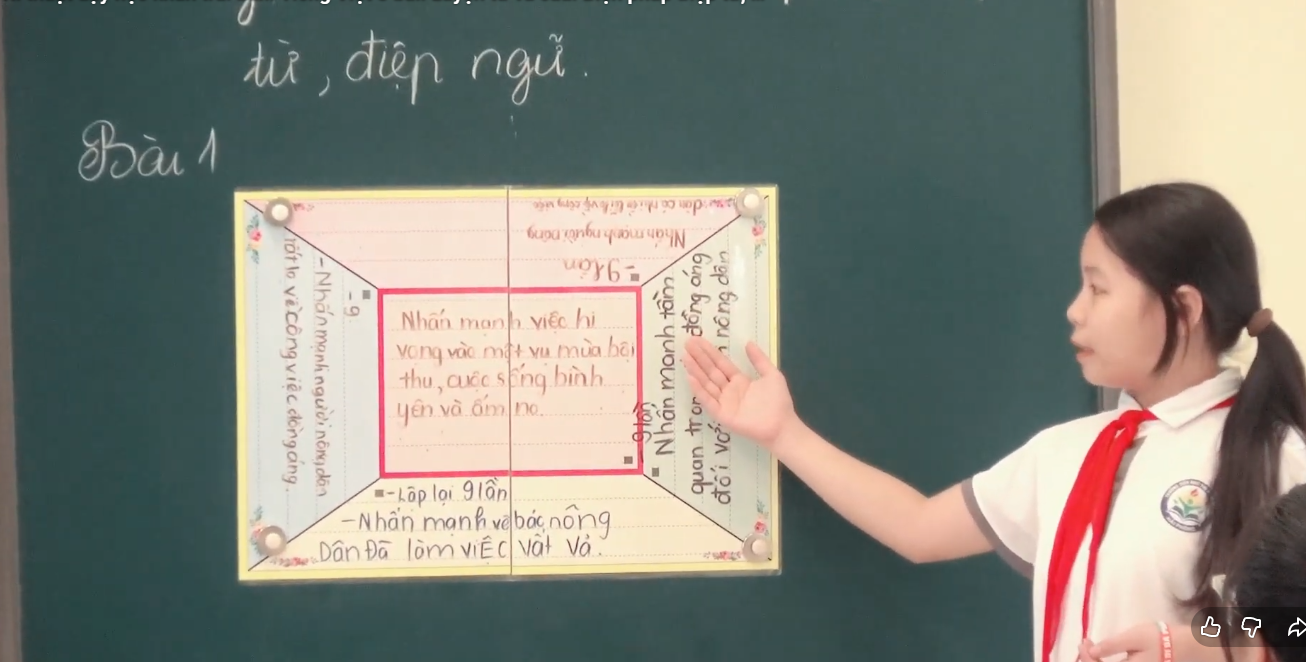 từ, điệp ngữ.
Bài 1
dân có nhiều
Nhấn mạnh người nông
- 9 lần
- 9
- Nhấn mạnh người nông dân
tất lo về công việc đồng áng.
Nhấn mạnh việc hi
vọng vào một vụ mùa bội
thu, cuộc sống bình
yên và ấm no.
- 9 lần
Nhấn mạnh tầm
quan trọng đồng áng
đối với nông dân
- Lặp lại 9 lần
- Nhấn mạnh về bác nông
Dân Đã làm việc vất vả.